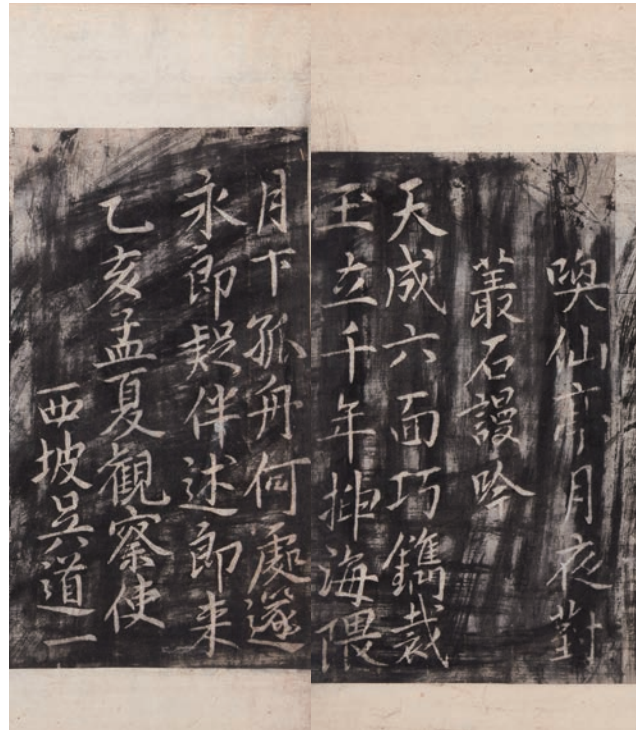 喚仙亭月夜對
叢石謾吟
天成六面巧鐫裁
玉立千年揷海隈
月下孤舟何處邃
永郎疑伴述郎来
乙亥孟夏觀察使
西坡吳道一